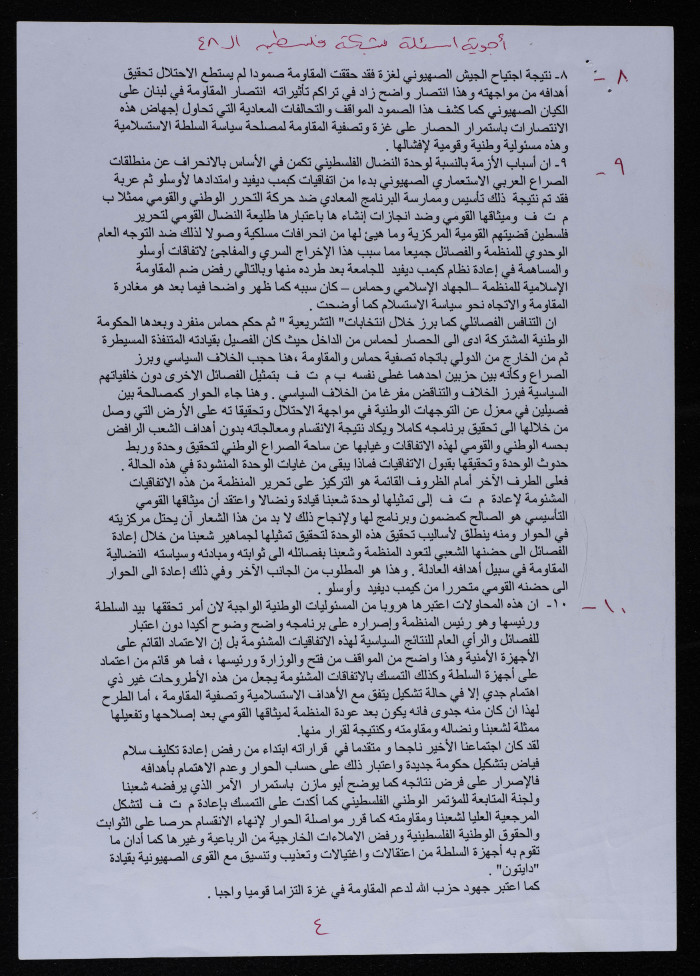 أجوبة اسئلة شبكة فلسطين الـ ٤٨
٨ -
٨- نتيجة اجتياح الجيش الصهيوني لغزة فقد حققت المقاومة صمودا لم يستطع الاحتلال تحقيق
أهدافه من مواجهته وهذا انتصار واضح زاد في تراكم تأثيراته انتصار المقاومة في لبنان على
الكيان الصهيوني كما كشف هذا الصمود المواقف والتحالفات المعادية التي تحاول إجهاض هذه
الانتصارات باستمرار الحصار على غزة وتصفية المقاومة لمصلحة سياسة السلطة الاستسلامية
وهذه مسئولية وطنية وقومية لإفشالها .
٩ -
٩- ان أسباب الأزمة بالنسبة لوحدة النضال الفلسطيني تكمن في الأساس بالانحراف عن منطلقات
الصراع العربي الاستعماري الصهيوني بدءا من اتفاقيات كيمب ديفيد وامتدادها لأوسلو ثم عربة
فقد تم نتيجة ذلك تأسيس وممارسة البرنامج المعادي ضد حركة التحرر الوطني والقومي ممثلا ب
م ت ف وميثاقها القومي وضد انجازات إنشاء ها باعتبارها طليعة النضال القومي لتحرير
فلسطين قضيتهم القومية المركزية وما هيئ لها من انحرافات مسلكية وصولا لذلك ضد التوجه العام
الوحدوي للمنظمة والفصائل جميعا مما سبب هذا الإخراج السري والمفاجئ لاتفاقات أوسلو
والمساهمة في إعادة نظام كيمب ديفيد للجامعة بعد طرده منها وبالتالي رفض ضم المقاومة
الإسلامية للمنظمة –الجهاد الإسلامي وحماس – كان سببه كما ظهر واضحا فيما بعد هو مغادرة
المقاومة والاتجاه نحو سياسة الاستسلام كما أوضحت .
ان التنافس الفصائلي كما برز خلال انتخابات" التشريعية " ثم حكم حماس منفرد وبعدها الحكومة
الوطنية المشتركة ادى الى الحصار لحماس من الداخل حيث كان الفصيل بقيادته المتنفذة المسيطرة
ثم من الخارج من الدولي باتجاه تصفية حماس والمقاومة ،هنا حجب الخلاف السياسي وبرز
الصراع وكأنه بين حزبين احدهما غطى نفسه ب م ت ف بتمثيل الفصائل الاخرى دون خلفياتهم
السياسية فبرز الخلاف والتناقض مفرغا من الخلاف السياسي . وهنا جاء الحوار كمصالحة بين
فصيلين في معزل عن التوجهات الوطنية في مواجهة الاحتلال وتحقيقا ته على الأرض التي وصل
من خلالها الى تحقيق برنامجه كاملا ويكاد نتيجة الانقسام ومعالجاته بدون أهداف الشعب الرافض
بحسه الوطني والقومي لهذه الاتفاقات وغيابها عن ساحة الصراع الوطني لتحقيق وحدة وربط
حدوث الوحدة وتحقيقها بقبول الاتفاقيات فماذا يبقى من غايات الوحدة المنشودة في هذه الحالة .
فعلى الطرف الآخر أمام الظروف القائمة هو التركيز على تحرير المنظمة من هذه الاتفاقيات
المشئومة لإعادة م ت ف إلى تمثيلها لوحدة شعبنا قيادة ونضالا واعتقد أن ميثاقها القومي
التأسيسي هو الصالح كمضمون وبرنامج لها ولإنجاح ذلك لا بد من هذا الشعار أن يحتل مركزيته
في الحوار ومنه ينطلق لأساليب تحقيق هذه الوحدة لتحقيق تمثيلها لجماهير شعبنا من خلال إعادة
الفصائل الى حضنها الشعبي لتعود المنظمة وشعبنا بفصائله الى ثوابته ومبادئه وسياسته النضالية
المقاومة في سبيل أهدافه العادلة . وهذا هو المطلوب من الجانب الآخر وفي ذلك إعادة الى الحوار
الى حضنه القومي متحررا من كيمب ديفيد وأوسلو .
١٠ -
١٠- ان هذه المحاولات اعتبرها هروبا من المسئوليات الوطنية الواجبة لان أمر تحققها بيد السلطة
ورئيسها وهو رئيس المنظمة وإصراره على برنامجه واضح وضوح أكيدا دون اعتبار
للفصائل والرأي العام للنتائج السياسية لهذه الاتفاقيات المشئومة بل إن الاعتماد القائم على
الأجهزة الأمنية وهذا واضح من المواقف من فتح والوزارة ورئيسها ، فما هو قائم من اعتماد
على أجهزة السلطة وكذلك التمسك بالاتفاقات المشئومة يجعل من هذه الأطروحات غير ذي
اهتمام جدي إلا في حالة تشكيل يتفق مع الأهداف الاستسلامية وتصفية المقاومة ، أما الطرح
لهذا ان كان منه جدوى فانه يكون بعد عودة المنظمة لميثاقها القومي بعد إصلاحها وتفعيلها
ممثلة لشعبنا ونضاله ومقاومته وكنتيجة لقرار منها.
لقد كان اجتماعنا الأخير ناجحا و متقدما في قراراته ابتداء من رفض إعادة تكليف سلام
فياض بتشكيل حكومة جديدة واعتبار ذلك على حساب الحوار وعدم الاهتمام بأهدافه
فالإصرار على فرض نتائجه كما يوضح أبو مازن باستمرار الأمر الذي يرفضه شعبنا
ولجنة المتابعة للمؤتمر الوطني الفلسطيني كما أكدت على التمسك بإعادة م ت ف لتشكل
المرجعية العليا لشعبنا ومقاومته كما قرر مواصلة الحوار لإنهاء الانقسام حرصا على الثوابت
والحقوق الوطنية الفلسطينية ورفض الاملاءات الخارجية من الرباعية وغيرها كما أدان ما
تقوم به أجهزة السلطة من اعتقالات واغتيالات وتعذيب وتنسيق مع القوى الصهيونية بقيادة
"دايتون" .
كما اعتبر جهود حزب الله لدعم المقاومة في غزة التزاما قوميا واجبا .
٤